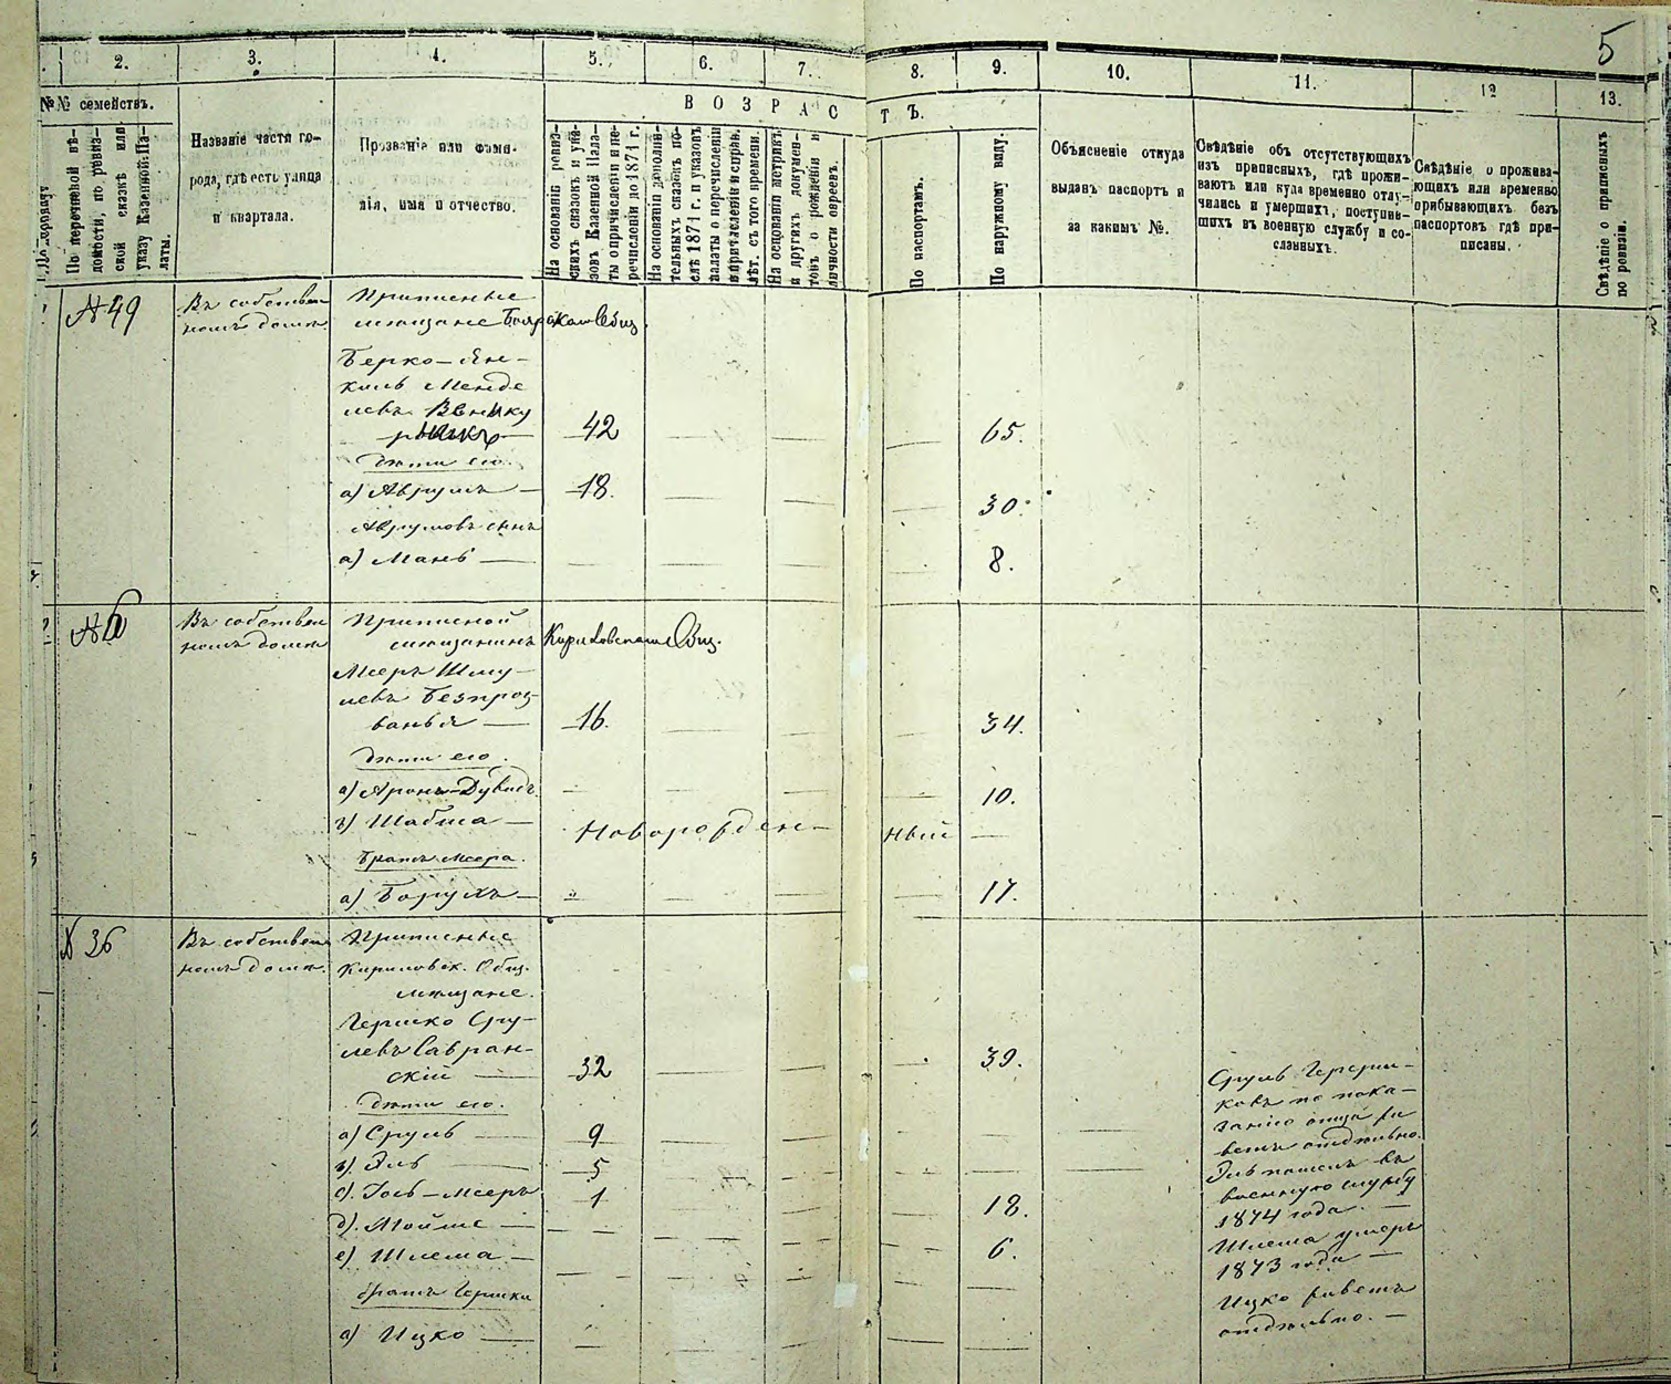 5
2.
3.
4.
5.
6.
7.
8.
9.
10.
11.
12
13.
№№ семействъ.
ВОЗРАСТЪ.
По порядку
По перечневой вѣ-
домости, по ревиз-
ской сказкѣ или
указу Казенной Па-
латы.
Названіе части го-
рода, гдѣ есть улица
и квартала.
Прозваніе или фами-
лія, имя и отчество.
На основаніи ревиз-
скихъ сказокъ и ука-
зовъ Казенной Пала-
ты о причисленіи и пе-
речисленіи до 1871 г.
На основаніи дополни-
тельныхъ сказокъ по-
слѣ 1871 г. и указовъ
палаты о перечисленіи
лѣт. съ того времени.
На основаніи метрикъ
и другихъ докумен-
товъ о рожденіи и
личности евреевъ.
По паспортамъ.
По наружному виду.
Объясненіе откуда
выданъ паспортъ и
за какимъ №.
Свѣдѣніе объ отсутствующихъ
изъ приписныхъ, гдѣ прожи-
ваютъ или куда временно отлу-
чились и умершихъ, поступив-
шихъ въ военную службу и со-
сланныхъ.
Свѣдѣніе о прожива-
ющихъ или временно
прибывающихъ безъ
паспортовъ гдѣ при-
писаны.
Свѣдѣніе о приписныхъ
по ревизіи.
№ 49
Въ собствен
номъ домѣ.
Приписные
мѣщане
Берко-Ян-
кель Менде
левъ Винику
рникъ — 42 — — — 65.
дѣти его.
а) Аврумъ — 18. — — — 30.
Аврумовъ сынъ
а) Мань — — — — — 8.
Въ собствен
номъ домѣ
Приписной
мѣщанинъ Кириловскаго Общ.
Мееръ Шму-
левъ Безпроз-
ванья — 16. — — — 34.
дѣти его.
а) Аронъ-Дувидъ. — — — — 10.
в) Шабса — Новорожден- ный —
Братъ Меера.
а) Борухъ — — — — 17.
№ 36
Въ собствен
номъ домѣ.
Приписные
Кириловск. Общ.
мѣщане.
Гершко Сру-
левъ Савран-
скій — 32 — — — 39.
дѣти его.
а) Сруль — 9 — — — — —
в). Эль — 5 — — — — —
с). Іось-Мееръ 1 — — — 18.
д). Мойше — — — — — 6.
е) Шлема — — — — — —
братъ Гершки
а) Ицко — — — — — —
Сруль Герш-
ковъ по пока-
занію отца жи
ветъ отдѣльно.
Эль пошелъ въ
военную службу
1874 года. —
Шлема умеръ
1873 года —
Ицко живетъ
отдѣльно. —